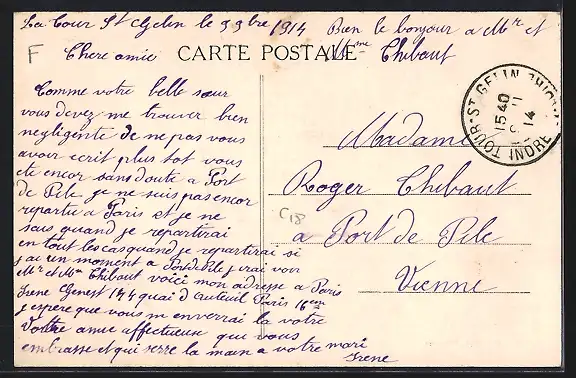 La Tour St Gelin le 9 9bre 1914
Bien le bonjour a Mr et
Mme Thibaut
F
Chere amie
CARTE POSTALE
Comme votre belle sœur
vous devez me trouver bien
negligente de ne pas vous
avoir ecrit plus tot vous
ete encor sans doute a Port
de Pile je ne suis pas encor
repartu a Paris et je ne
sais quand je repartirai
en tout les cas quand je repartirai si
j'ai un moment a Port de Pile j'irai voir
Mr et Mm Thibaut voici mon adresse a Paris
Irene Genest 144 quai d'auteuil Paris 16em
j'espere que vous m'enverrai la votre
Votre amie affectueuse qui vous
embrasse et qui serre la main a votre mari
Irene
TOUR-ST GELIN
15 40
11
14
INDRE
Madame
Roger Thibaut
C18
a Port de Pile
Vienne